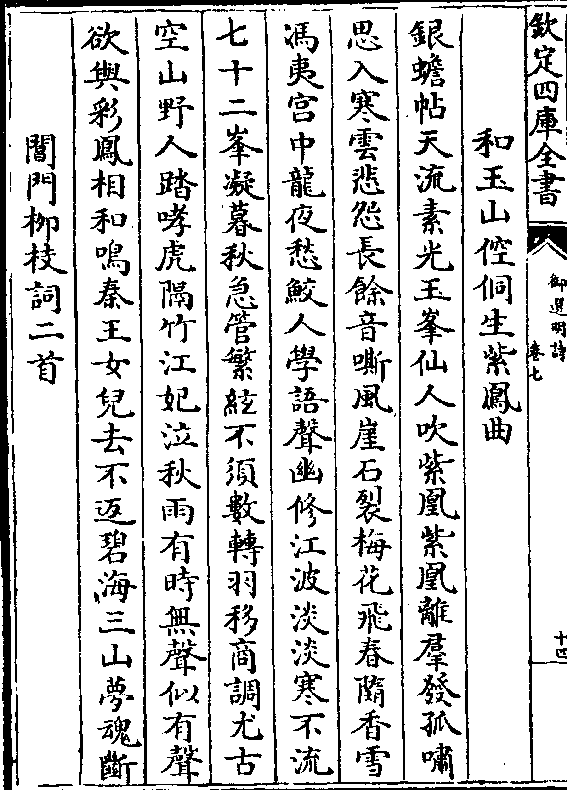 欽定四庫全書
御選明詩
卷七
十四
和玉山倥侗生紫鳳曲
銀蟾帖天流素光玉峯仙人吹紫凰紫凰離羣發孤嘯
思入寒雲悲怨長餘音嘶風崖石裂梅花飛春隨香雪
馮夷宫中龍夜愁鮫人學語聲幽修江波淡淡寒不流
七十二峯凝暮秋急管繁絃不須數轉羽移商調尤古
空山野人踏哮虎隔竹江妃泣秋雨有時無聲似有聲
欲與彩鳳相和鳴秦王女兒去不返碧海三山夢魂斷
閶門柳枝詞二首